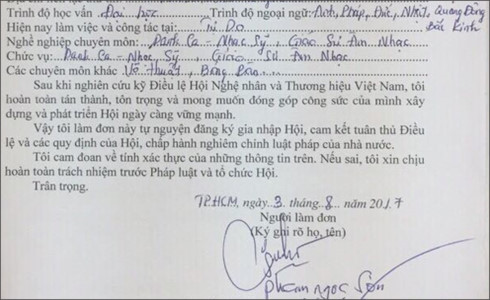 Trình độ học vấn Đại học Trình độ ngoại ngữ: Anh, Pháp, Đức, Nhật, Quảng Đông
Hiện nay làm việc và công tác tại: Tự Do Bắc Kinh
Nghề nghiệp chuyên môn: Danh Ca - Nhạc Sỹ, Giáo Sư Âm Nhạc
Chức vụ: Danh Ca - Nhạc Sỹ, Giáo Sư Âm Nhạc
Các chuyên môn khác: Võ thuật, Bóng Bàn
Sau khi nghiên cứu kỹ Điều lệ Hội Nghệ nhân và Thương hiệu Việt Nam, tôi
hoàn toàn tán thành, tôn trọng và mong muốn đóng góp công sức của mình xây
dựng và phát triển Hội ngày càng vững mạnh.
Vậy tôi làm đơn này tự nguyện đăng ký gia nhập Hội, cam kết tuân thủ Điều
lệ và các quy định của Hội, chấp hành nghiêm chỉnh luật pháp của nhà nước.
Tôi cam đoan về tính xác thực của những thông tin trên. Nếu sai, tôi xin chịu
hoàn toàn trách nhiệm trước Pháp luật và tổ chức Hội.
Trân trọng.
TP.HCM, ngày 3 tháng 8 năm 2017
Người làm đơn
(Ký ghi rõ họ, tên)
Phạm Ngọc Sơn